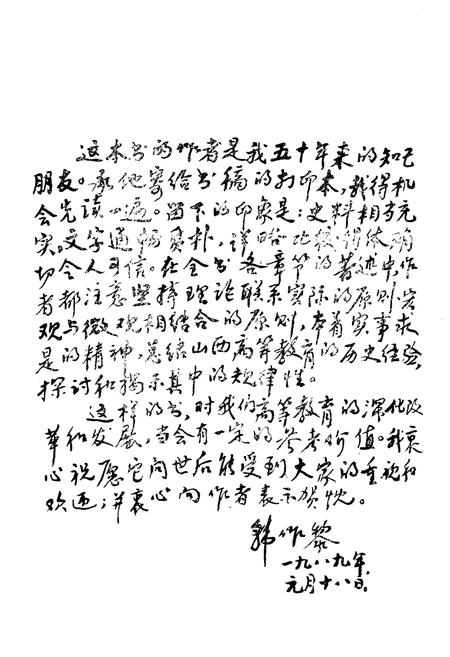 这本书的作者是我五十年来的知己
朋友。承他寄给书稿的打印本，我得机
会先读一遍。留下的印象是：史料相当充
实，文字通畅质朴，详略比较得体，确
切令人可信。在全书各章节的著述中，作
者都注意坚持理论联系实际的原则，宏
观与微观相结合的原则，本着实事求
是的精神，总结山西高等教育的历史经验，
探讨和揭示其中的规律性。
这样的书，对我们高等教育的深化改
革和发展，当会有一定的参考价值。我衷
心祝愿它问世后能受到大家的重视和
欢迎；并衷心向作者表示贺忱。
韩作黎
一九八九年
元月十八日。